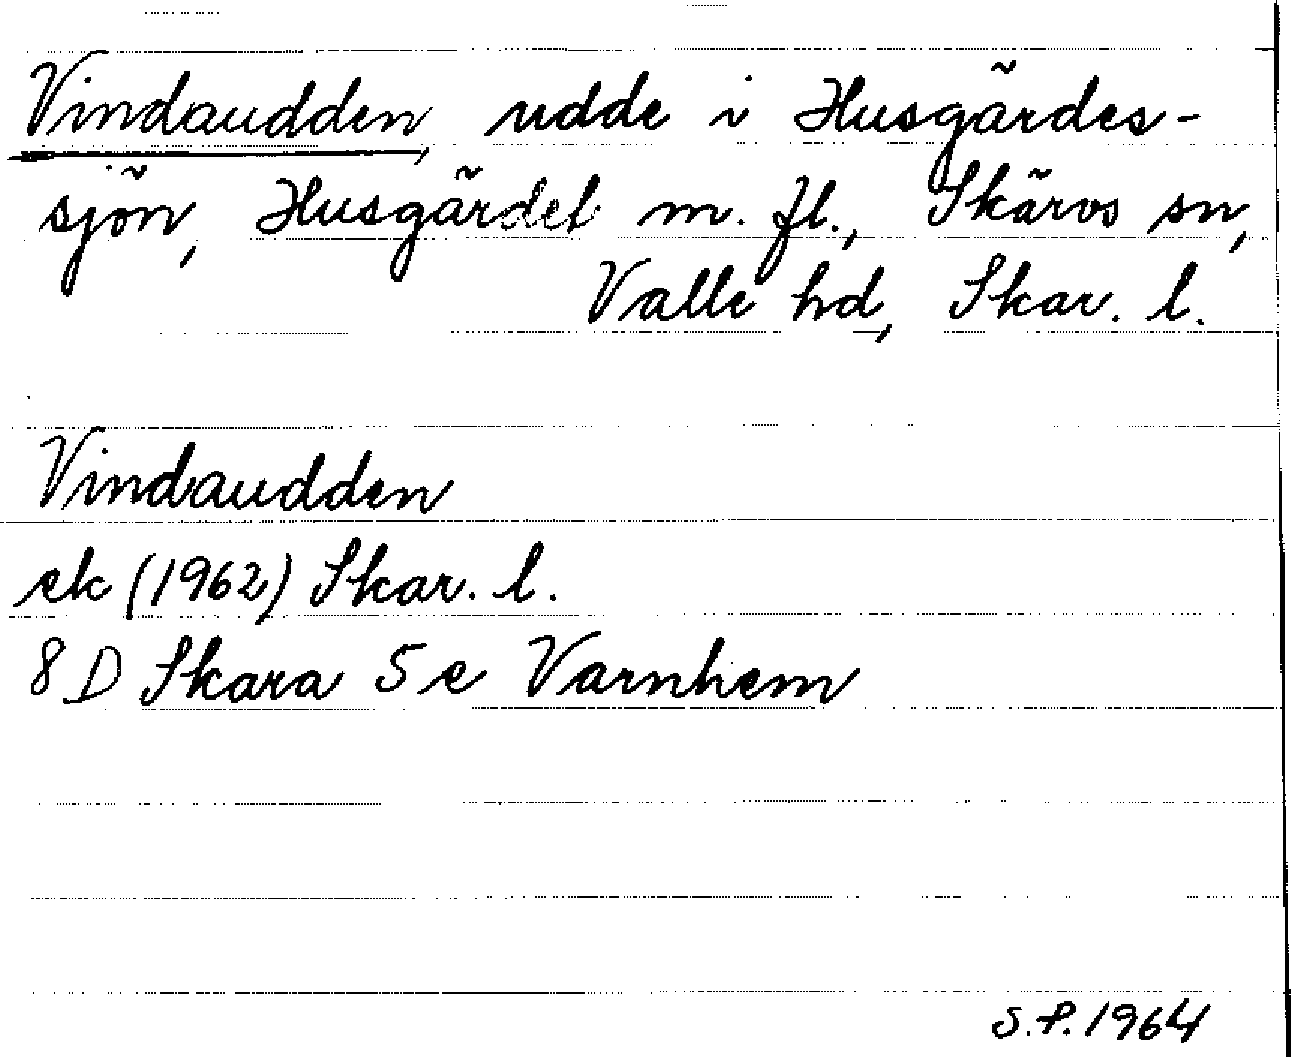 Vindaudden, udde i Husgärdes-
sjön, Husgärdet m. fl., Skärvs sn,
Valle hd, Skar. l.
Vindaudden
ek (1962) Skar. l.
8 D Skara 5 e Varnhem
S.P. 1964